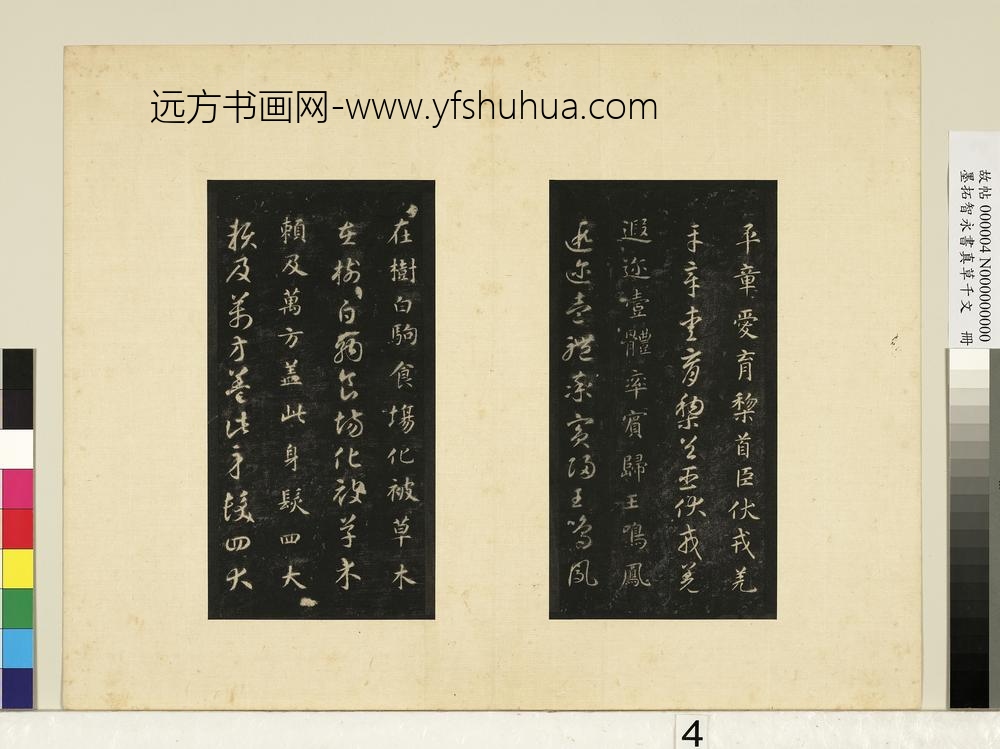 远方书画网-www.yfshuhua.com
平章愛育黎首臣伏戎羌
平章愛育黎首臣伏戎羌
遐迩壹體率賓歸王鳴鳳
遐迩壹體率賓歸王鳴鳳
在樹白駒食場化被草木
在樹白駒食場化被草木
賴及萬方盖此身髮四大
賴及萬方盖此身髮四大
故帖 000004 N000000000
墨拓智永書真草千文 冊
4